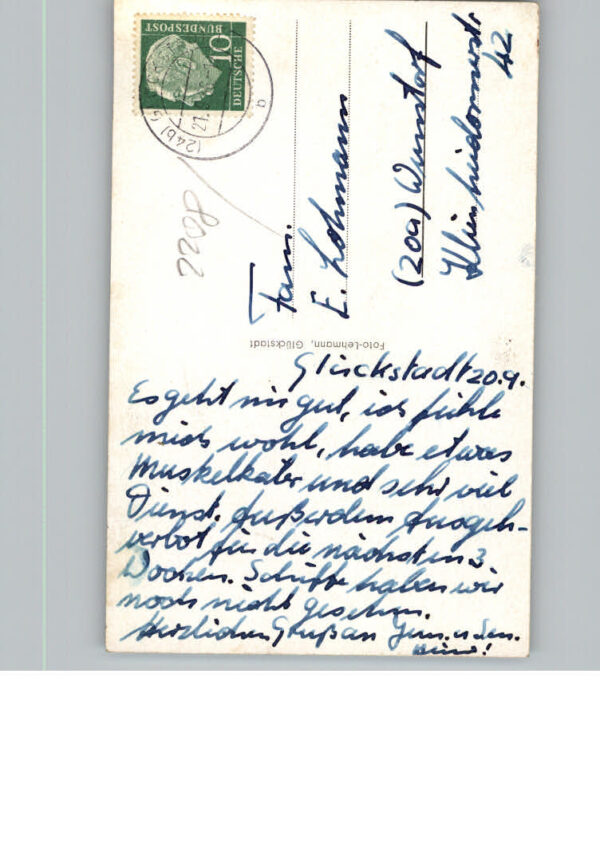 DEUTSCHE
BUNDESPOST
10
(24b)
21.
b
8022
Fam.
E. Lohmann
(20a) Wunstorf
42
Foto-Lehmann, Glückstadt
Glückstadt 20.9.
Es geht mir gut, ich fühle
mich wohl, habe etwas
Muskelkater und sehr viel
Dienst. Außerdem Ausgeh-
verbot für die nächsten 3
Wochen. Schiffe haben wir
noch nicht gesehen.
Herzlichen Gruß an